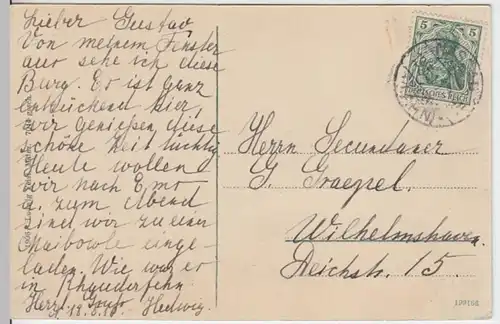 Lieber Gustav
Von meinem Fenster
aus sehe ich diese
Burg. Es ist ganz
entzückend hier,
wir genießen diese
schöne Zeit tüchtig
Heute wollen
wir nach E
zum Abend
sind wir zu einer
Maibowle einge-
laden. Wie war es
in Rhauderfehn
Herzl. Gruß Hedwig.
5
5
DEUTSCHES REICH
Herrn Secundaner
G. Graepel.
Wilhelmshaven.
Deichstr. 15.